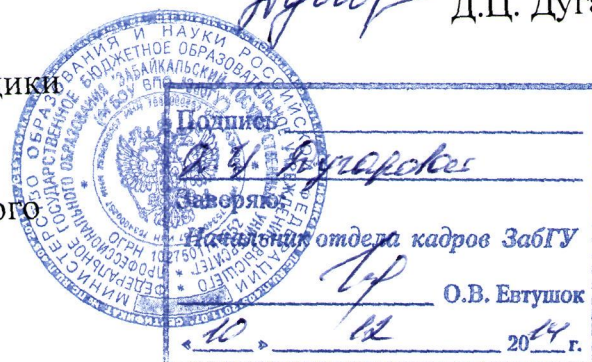 Д.Ц. Дуга
дики
ого
МИНИСТЕРСТВО ОБРАЗОВАНИЯ И НАУКИ РОССИЙСКОЙ ФЕДЕРАЦИИ
ФЕДЕРАЛЬНОЕ ГОСУДАРСТВЕННОЕ БЮДЖЕТНОЕ ОБРАЗОВАТЕЛЬНОЕ УЧРЕЖДЕНИЕ ВЫСШЕГО
ПРОФЕССИОНАЛЬНОГО ОБРАЗОВАНИЯ ЗАБАЙКАЛЬСКИЙ
ОГРН
Подпись
Д.Ц. Дугаровой
Заверяю:
Начальник отдела кадров ЗабГУ
О.В. Евтушок
«10» 12 2014 г.